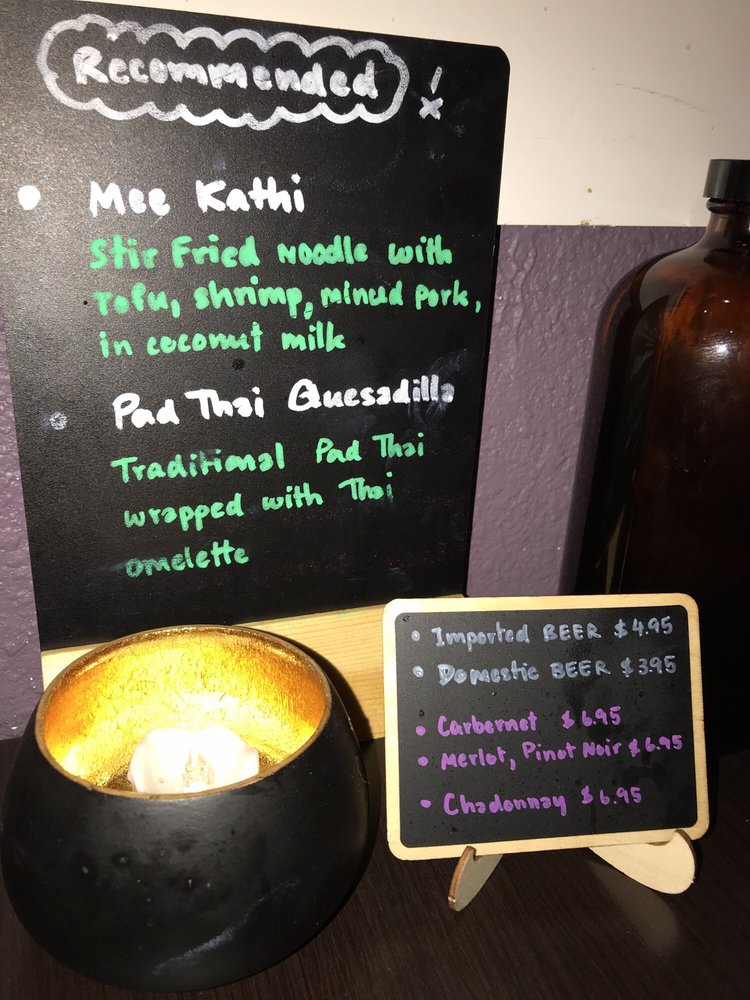 Recommended !
• Mee Kathi
Stir Fried Noodle with
Tofu, shrimp, minud pork,
in coconut milk
• Pad Thai Quesadilla
Traditional Pad Thai
wrapped with Thai
omelette
• Imported BEER $4.95
• Domestic BEER $3.95
• Carbernet $6.95
• Merlot, Pinot Noir $6.95
• Chadonnay $6.95